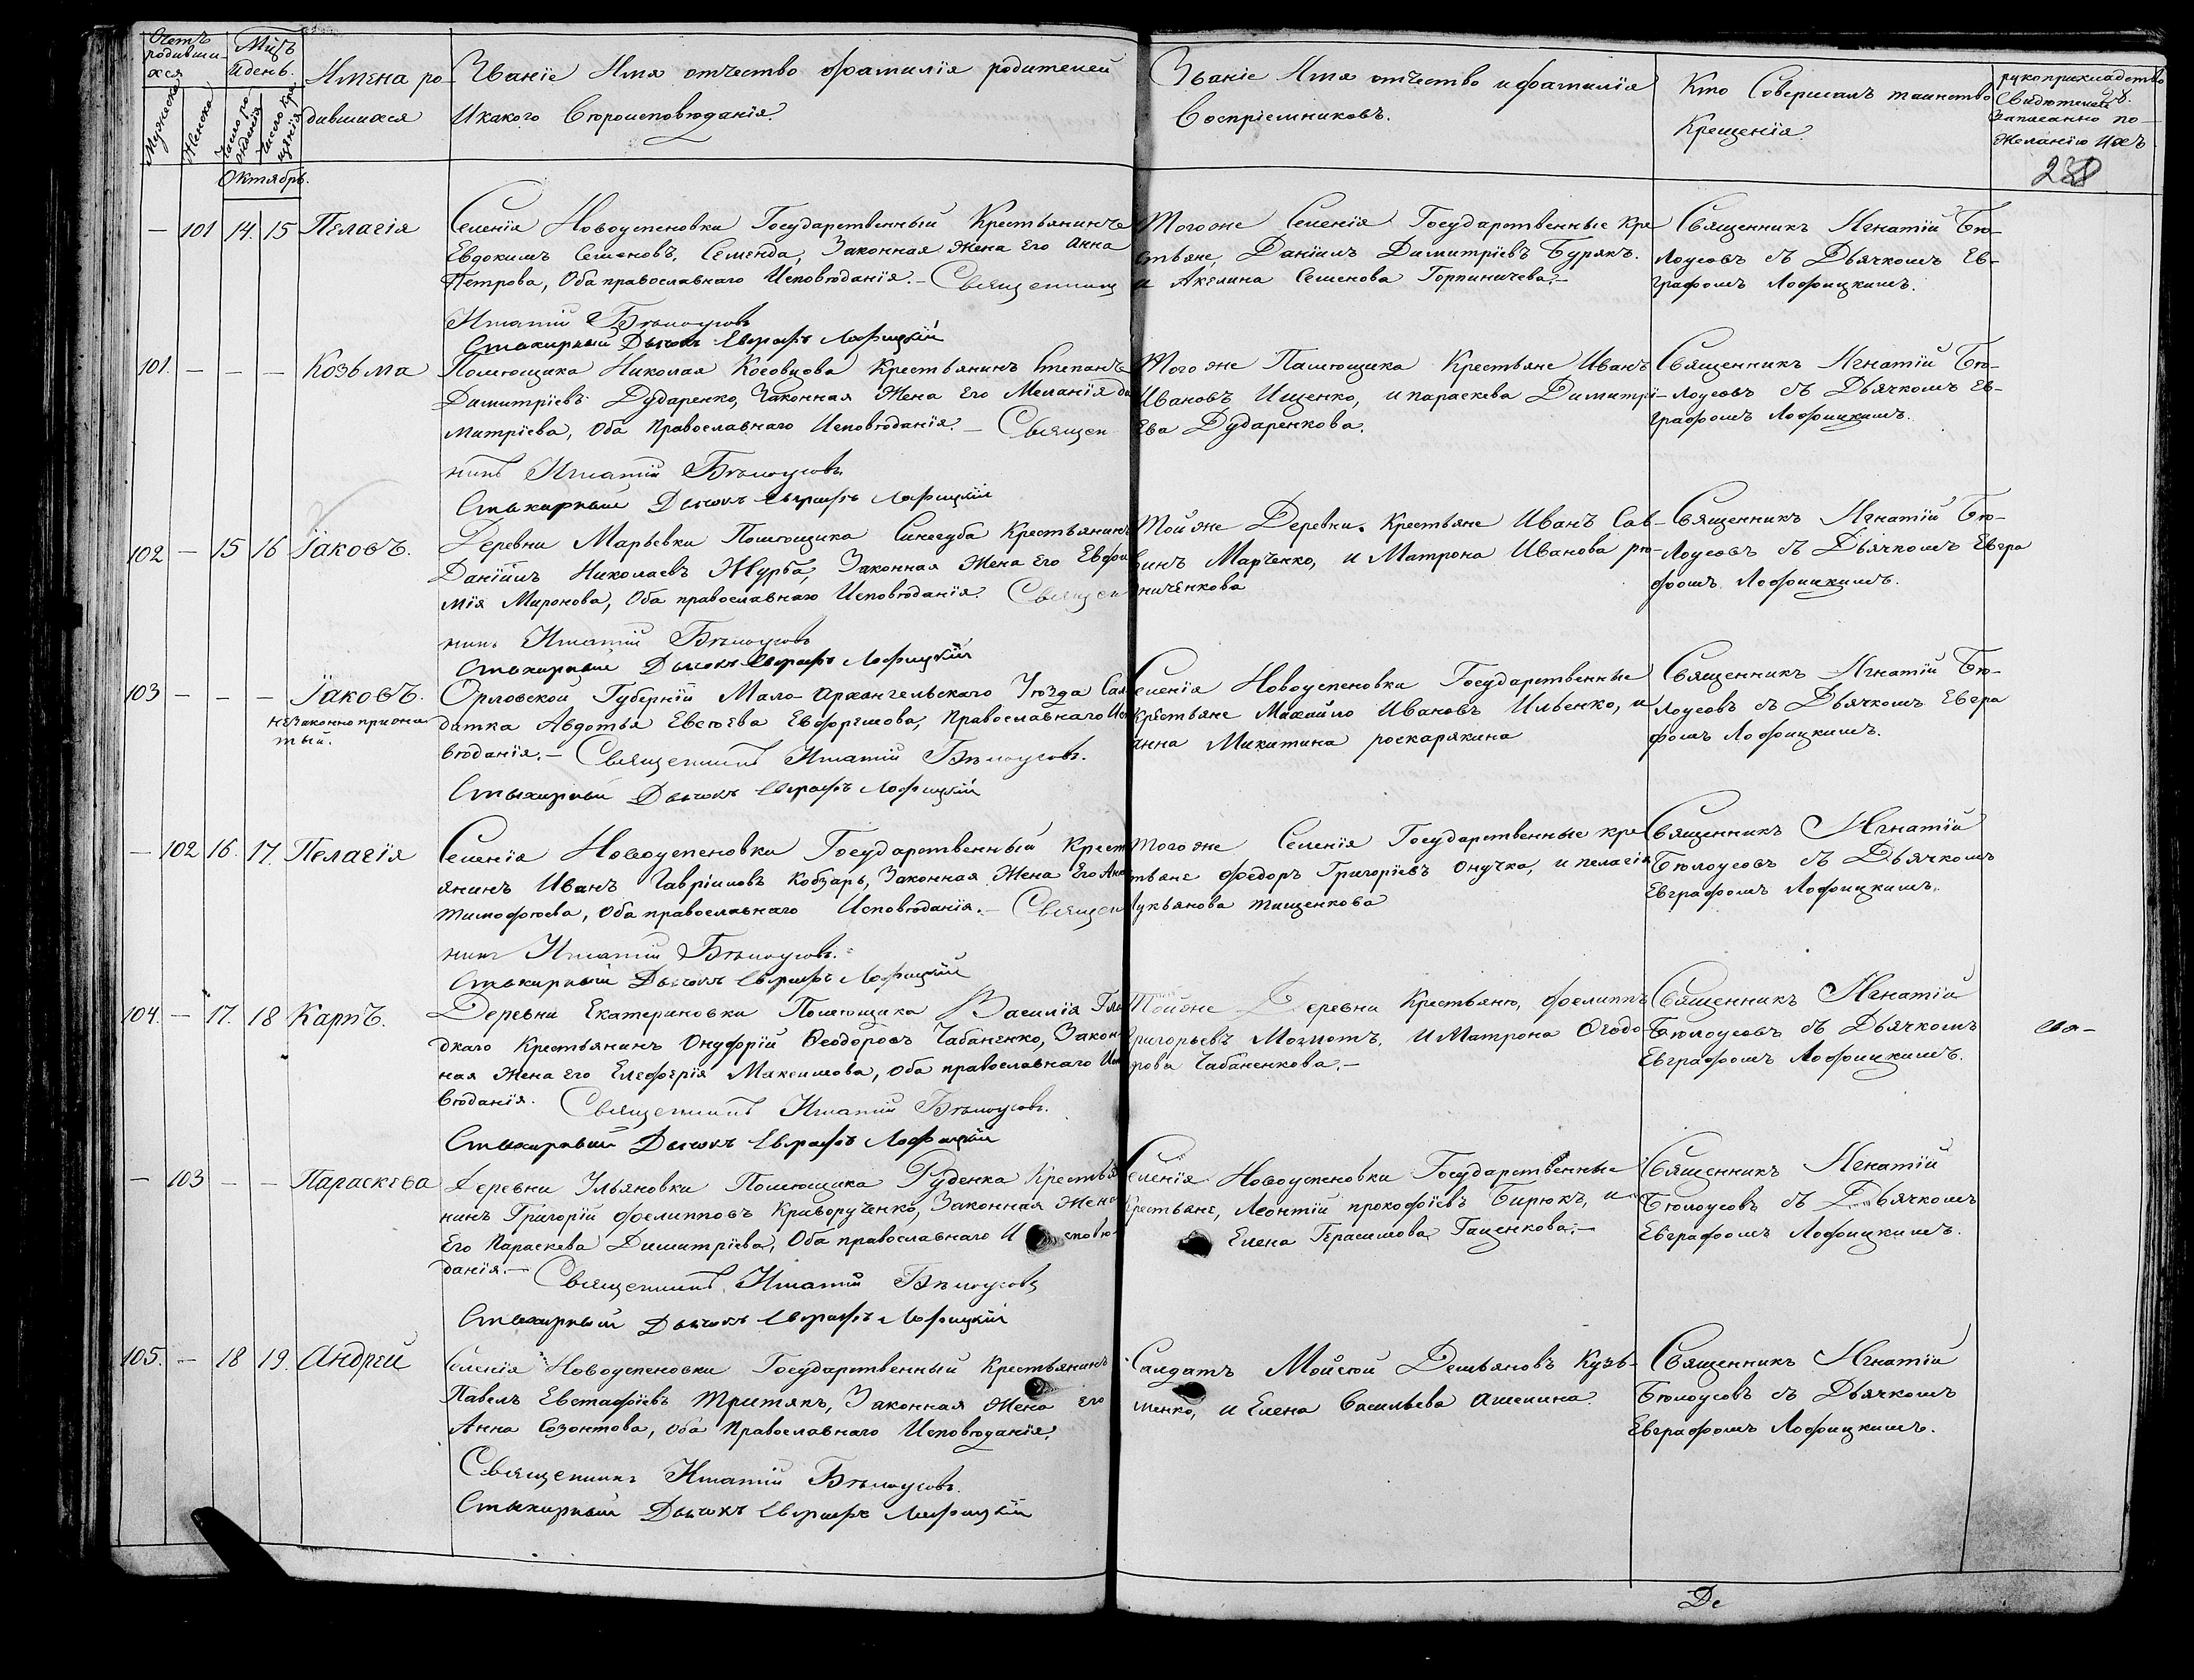 Счетъ родившихся
Мужеска
Женска
Мцъ и день.
Число рожденія
Число крещенія
Имена ро-
дившихся
Званіе Имя отчество фамилія родителей
И какого Вѣроисповѣданія.
Званіе Имя отчество и фамилія
Воспріемниковъ.
Кто Совершалъ таинство
Крещенія.
рукоприкладство
Свидѣтелей
Записанно по
Желанію ихъ
238
Октябрь.
— 101 14. 15 Пелагія
Селенія Новоуспеновки Государственный Крестьянинъ
Евдокимъ Семеновъ, Семенда, Законная Жена Его Анна
Петрова, Оба православнаго Исповѣданія.— Священникъ
Игнатій Бѣлоусовъ
Стихирный Дьячокъ Евграфъ Лофицкій
Того же Селенія Государственные Кре
стьяне, Даніилъ Димитріевъ Бурякъ.
и Акелина Семенова Горпиничева.—
Священникъ Игнатій Бѣ-
лоусовъ съ Дьячкомъ Ев-
графомъ Лофицкимъ.
101. — — — Козьма
Помѣщика Николая Косовцова Крестьянинъ Степанъ
Димитріевъ Дударенко, Законная Жена Его Меланія Ди
митріева, Оба Православнаго Исповѣданія.— Священ
никъ Игнатій Бѣлоусовъ
Стихирный Дьячокъ Евграфъ Лофицкій
Того же Памѣщика Крестьяне Иванъ
Ивановъ Ищенко, и параскева Димитрі-
ева Дударенкова.
Священникъ Игнатій Бѣ-
лоусовъ съ Дьячкомъ Ев-
графомъ Лофицкимъ.
102 — 15 16 Іаковъ.
Деревни Марьевки Помѣщика Синегуба Крестьянинъ
Даніилъ Николаевъ Журба, Законная Жена Его Евфи
мія Миронова, Оба православнаго Исповѣданія. Священ
никъ Игнатій Бѣлоусовъ
Стихирный Дьячокъ Евграфъ Лофицкій
Той же Деревни Крестьяне Иванъ Сав-
винъ Марченко, и Матрона Иванова рѣ-
зниченкова
Священникъ Игнатій Бѣ-
лоусовъ съ Дьячкомъ Евгра
фомъ Лофицкимъ.
103 — — — Іаковъ.
незаконно прижи
тый.
Орловской Губерніи Мало-Архангельскаго Уѣзда Сал
датка Авдотья Евсѣева Ефремова, Православнаго Испо
вѣданія.— Священникъ Игнатій Бѣлоусовъ.
Стихирный Дьячокъ Евграфъ Лофицкій
Селенія Новоуспеновка Государственные
Крестьяне Михайло Ивановъ Ильенко, и
анна Микитина роскарякина
Священникъ Игнатій Бѣ-
лоусовъ съ Дьячкомъ Евгра
фомъ Лофицкимъ.
— 102 16. 17. Пелагія
Селенія Новоуспеновки Государственный Крест
янинъ Иванъ Гавріиловъ Кобзарь, Законная Жена Его Анна
Тимофѣева, Оба православнаго Исповѣданія.— Священ
никъ Игнатій Бѣлоусовъ.
Стихирный Дьячокъ Евграфъ Лофицкій
Того же Селенія Государственные кре
стьяне Федоръ Григоріевъ Онучка, и пелагія
Лукьянова тищенкова
Священникъ Игнатій
Бѣлоусовъ съ Дьячкомъ
Евграфомъ Лофицкимъ.
104. — 17. 18 Карпъ.
Деревни Екатериновки Помѣщика Василія
дкаго Крестьянинъ Онуфрій Феодоровъ Чабаненко, Закон
ная Жена его Елефѣрія Максимова, Оба православнаго Испо
вѣданія. Священникъ Игнатій Бѣлоусовъ.
Стихирный Дьячокъ Евграфъ Лофицкій
Той же Деревни Крестьяне, Филиппъ
Григорьевъ Могилотъ, И Матрона Феодо-
рова Чабаненкова.—
Священникъ Игнатій
Бѣлоусовъ съ Дьячкомъ
Евграфомъ Лофицкимъ.
— 103 — — Параскева
Деревни Ульяновки Помѣщика Руденка Крестья
нинъ Григорій Филипповъ Криворученко, Законная Жена
Его Параскева Димитріева, Оба православнаго Исповѣ-
данія.— Священникъ Игнатій Бѣлоусовъ
Стихирный Дьячокъ Евграфъ Лофицкій
Селенія Новоуспеновки Государственные
Крестьяне, Леонтій прокофіевъ Бирюкъ, и
Елена Герасимова Гащенкова.—
Священникъ Игнатій
Бѣлоусовъ съ Дьячкомъ
Евграфомъ Лофицкимъ.
105. — 18 19. Андрей
Селенія Новоуспеновки Государственный Крестьянинъ
Павелъ Евстафіевъ Тритякъ, Законная Жена Его
Анна Созонтова, Оба Православнаго Исповѣданія.
Священникъ Игнатій Бѣлоусовъ.
Стихирный Дьячокъ Евграфъ Лофицкій
Салдатъ Мойсѣй Демьяновъ Кузь-
менко, и Елена Васильева Ашепина.
Священникъ Игнатій
Бѣлоусовъ съ Дьячкомъ
Евграфомъ Лофицкимъ.
Де